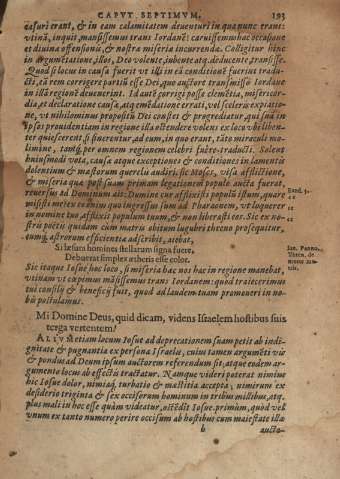 CAPVT SEPTIMVM. 193
casuri erant, & in eam calamitatem deuenturi in qua nunc erant:
vtinā, inquit, mansissemus trans Iordanē: caruissemus hac occasione
et diuina offensionis, & nostra miseria incurrenda. Colligitur hinc
in argumētatione, illos, Deo volente, iubente atq; deducente transisse.
Quod si locus in causa fuerit vt illi in eā conditionē fuerint tradu-
cti, eā rem corrigere portū esse Dei, quo auctore transmisso Iordane
in illā regionē deuenerint. Id autē corrigi posse clemētia, misericor-
dia, et declaratione causa, atq; emēdatione errati, vel sceleris expiatio-
ne, vt nihilominus propositū Dei constet & progrediatur, qui suā in
ipsos prouidentiam in regione illa ostendere volens ex loco vbi liben-
ter quieuissent, si sinerentur, ad eum, in quo erant, tāto miraculi mo-
limine, tamq; per omnem regionem celebri fuere traducti. Solent
huiusmodi vota, causa atque exceptiones & conditiones in lamentis
dolentium & mæstorum querelis audiri. sic Moses, visa afflictione,
& miseria qua post suam primam legationem populo aucta fuerat,
reuersus ad Dominum ait: Domine cur afflixisti populū istum, quare
misisti me? ex eo enim quo ingressus sum ad Pharaonem, vt loquerer
in nomine tuo afflixit populum tuum, & non liberasti eos. Sic ex no-
stris poetis quidam cum matris obitum lugubri threno prosequitur,
eumq; astrorum efficientia adscribit, aiebat,
Exod. 5.
Si læsum homines stellarum signa fuere,
Debuerat simplex ætheris esse color.
Sic itaque Iosue hoc loco, si miseria hac nos hac in regione manebat,
vtinam vt cœpimus māsissemus trans Iordanem: quod traiecerimus
tui consilij & beneficij fuit, quod ad laudem tuam promoueri in no-
bis postulamus.
Mi Domine Deus, quid dicam, videns Israelem hostibus suis
terga vertentem?
ALIVS etiam locus Iosue ad deprecationem suam petit ab indi-
gnitate & pugnantia ex persona Israelis, cuius tamen argumēti vis
& pondus ad Deum ipsum auctorem referendum sit, atque eodem ar-
gumento locus ab effectis tractatur. Namque videri poterat nimius
hic Iosue dolor, nimiaq; turbatio & mæstitia accepta, nimirum ex
desiderio triginta & sex occisorum hominum in tribus millibus, atq;
plus mali in hoc esse quàm videatur, ostēdit Iosue. primùm, quod vel
vnum ex tanto numero perire occisum ab hostibus cum maiestate illa
b aucto-